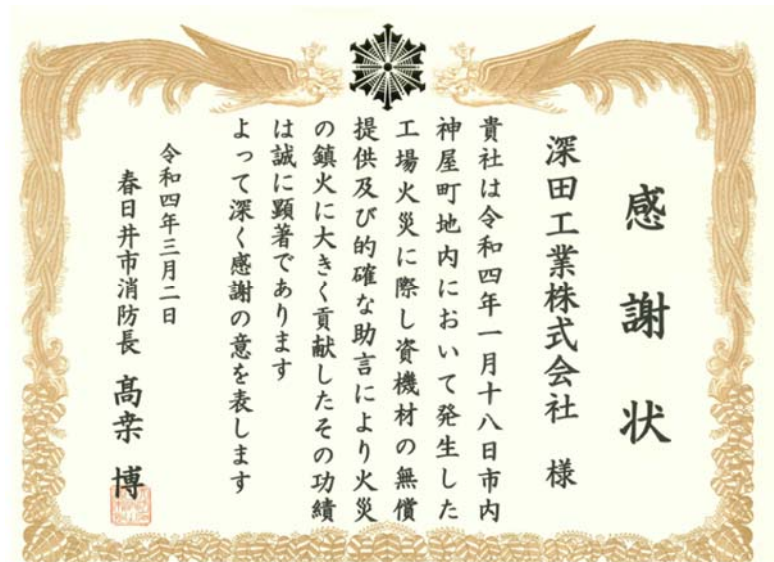 感謝状
深田工業株式会社 様
貴社は令和四年一月十八日市内
神屋町地内において発生した
工場火災に際し資機材の無償
提供及び的確な助言により火災
の鎮火に大きく貢献したその功績
は誠に顕著であります
よって深く感謝の意を表します
令和四年三月二日
春日井市消防長 髙桒 博